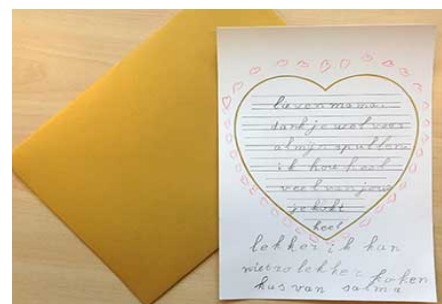 lieven mama
dank je wel voor
al mijn spullen
ik hou heel
veel van jou
je kokt
heel
lekker ik kan
niet zo lekker koken
kus van salma